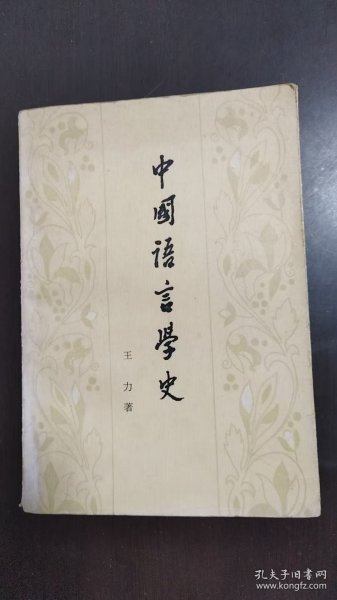 中國语言學史
王力著
孔夫子旧书网
www.kongfz.com